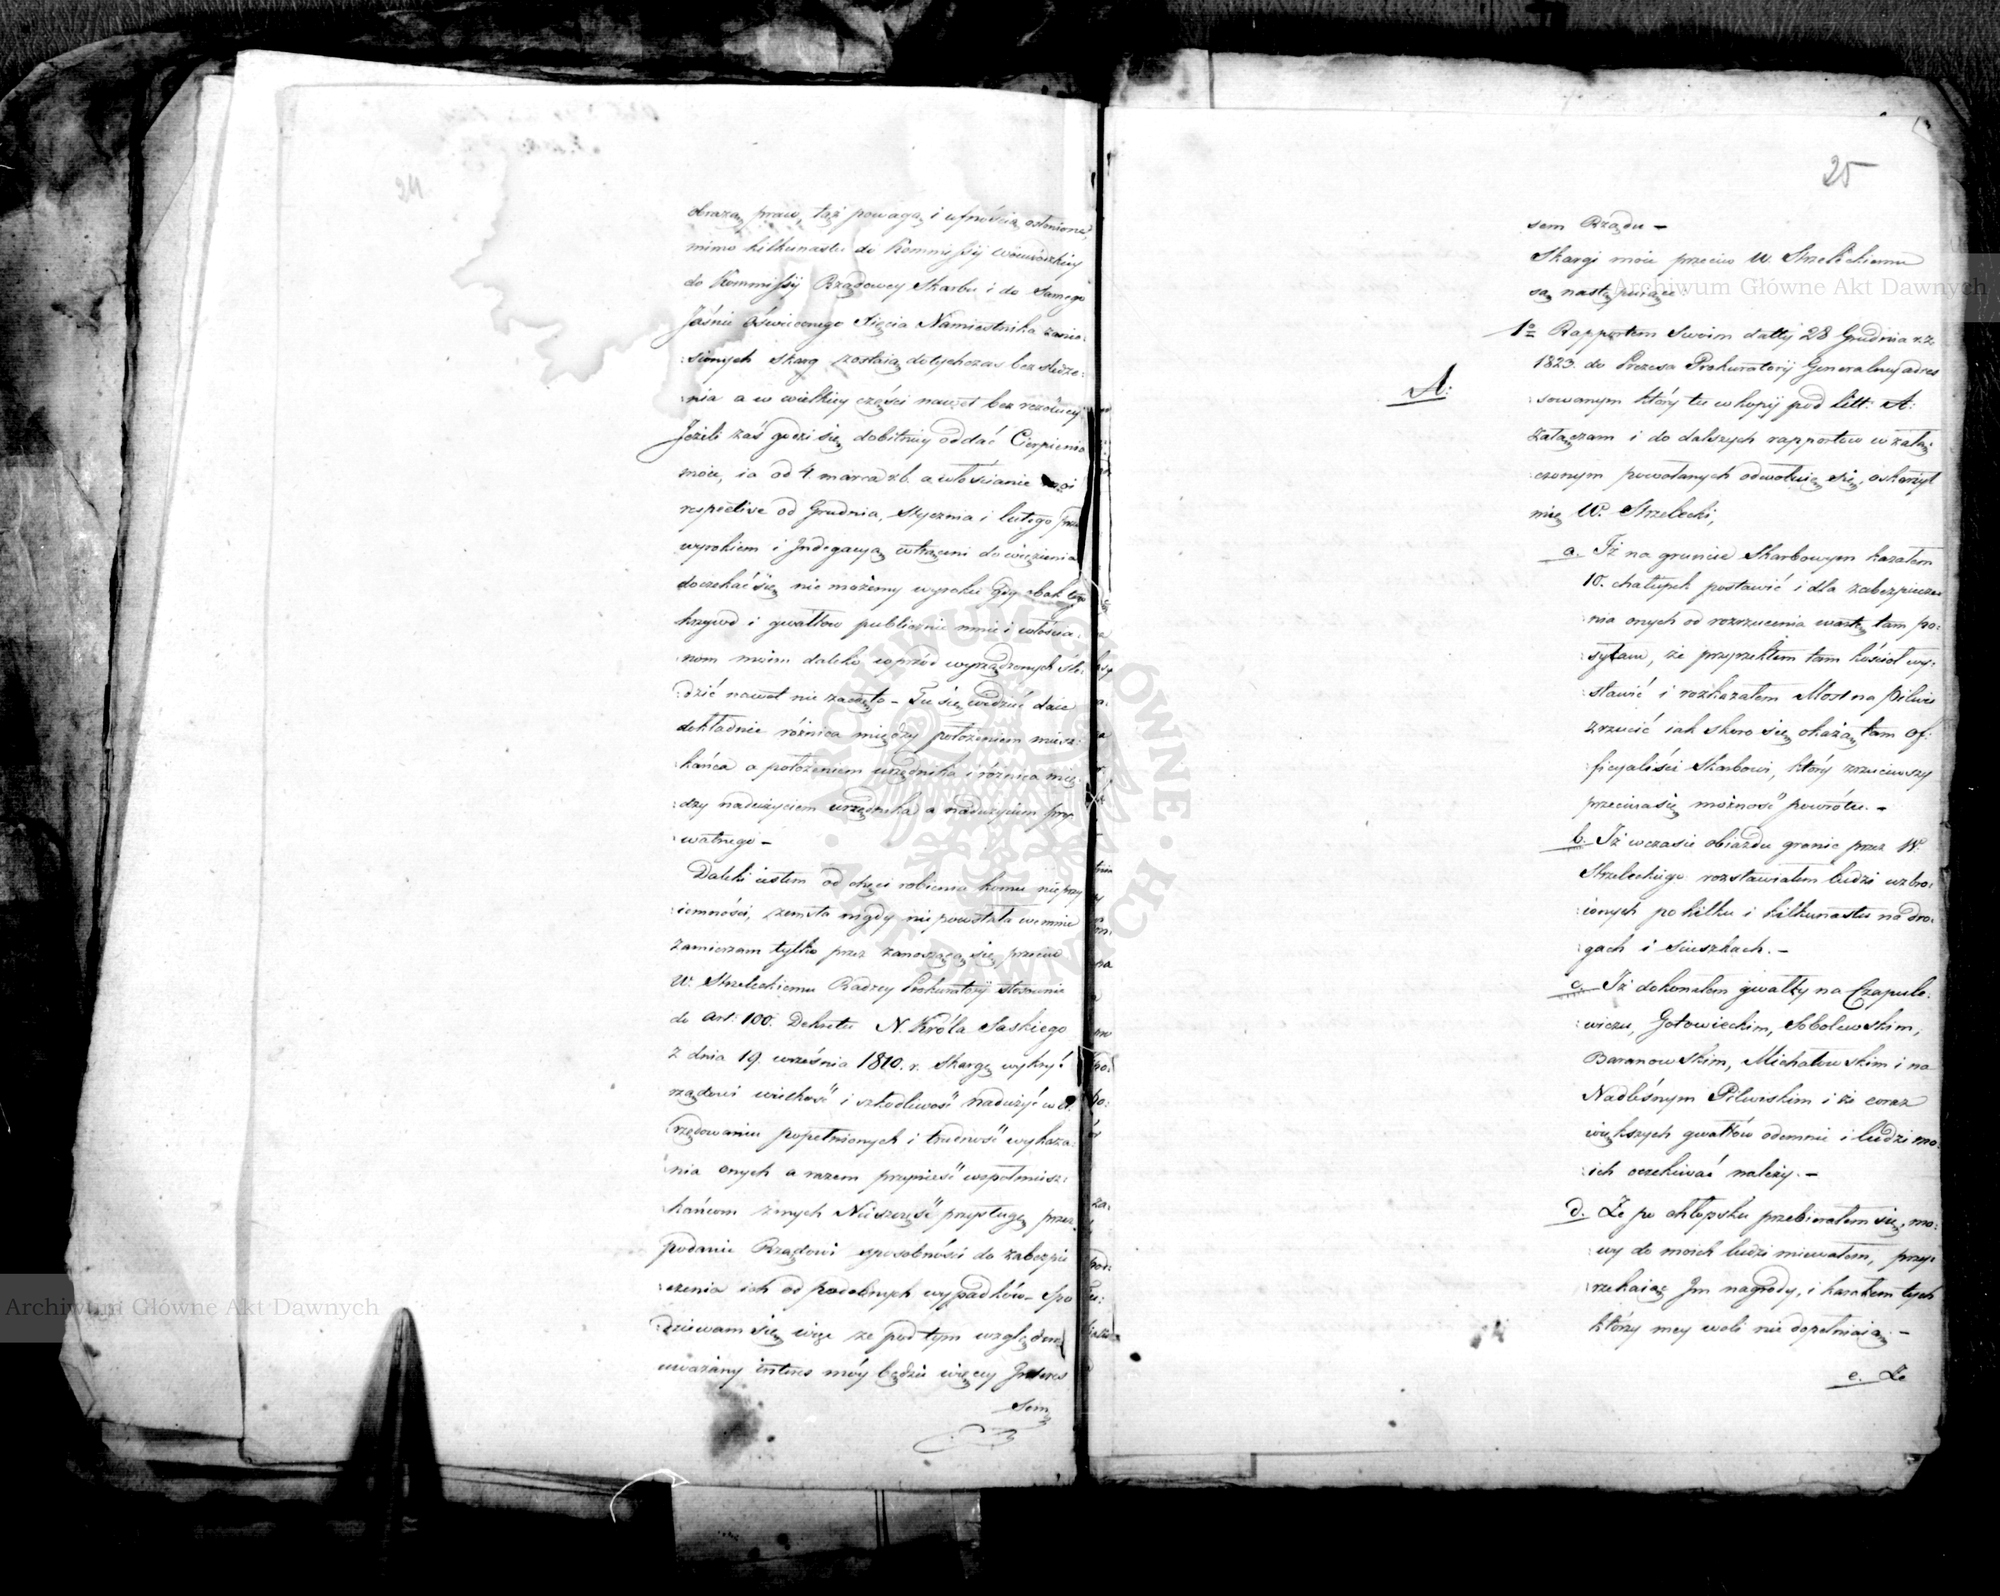 obrazą praw, taż powagą i ufnością osłonione,
mimo kilkunastu do Kommissyi Woiewódzkiey
do Kommissyi Rządowey Skarbu i do Samego
Jaśnie Oświeconego Xięcia Namiestnika zanie-
:sionych skarg zostaią dotychczas bez śledze:
:nia a w wielkiey części nawet bez rezolucyi
Jeżeli zaś godzi się dobitniey oddać Cierpienia
moie, ia od 4. marca r.b. a włościanie moi
respective od Grudnia, Stycznia i lutego przed
wyrokiem i Indagacyą wtrąceni do więzienia
doczekać się nie możemy wyroku gdy obok tego
krzywd i gwałtów publicznie mnie i włościa:
:nom moim daleko wprzód wyrządzonych śle:
:dzić nawet nie zaczęto – Tu się widzieć daie
dokładnie różnica między położeniem miesz:
:kańca a położeniem urzędnika i różnica mię:
:dzy nadużyciem urzędnika a nadużyciem pry:
:watnego –
Daleki iestem od chęci robienia komu nieprzy
:iemności, zemsta nigdy nie powstała we mnie
Zamierzam tylko przez zanoszącą się przeciw
W. Strzeleckiemu Radzcy Prokuratoryi stosownie
do Art: 100. Dekretu N. Króla Saskiego
z dnia 19. września 1810. r. Skargę wykryć
rządowi wielkość i szkodliwość nadużyć w U:
:rzędowaniu popełnionych i trudność wykaza:
:nia onych a razem przynieść współmiesz:
:kańcom innych Nieszczęść przysługę przez
podanie Rządowi sposobności do zabezpie
:czenia ich od podobnych wypadków – Spo
:dziewam się więc że pod tym względem
uważany interes móy będzie więcey Interes
sem
25
sem Rządu –
Skargi moie przeciw W. Strzeleckiemu
są następuiące:
1o Rapportem swoim datty 28 Grudnia r.z.
1823. do Prezesa Prokuratoryi Generalney adres
A:
:sowanym który tu w kopij pod Litt: A:
załączam i do dalszych rapportów w załą:
:czonym powołanych odwołuię się, oskarżył
mię W. Strzelecki,
a. Iż na gruncie Skarbowym kazałem
10. chałupek postawić i dla zabezpiecze
:nia onych od rozrzucenia wartę tam po:
:syłam, że przyrzekłem tam kościoł wy:
:stawić i rozkazałem Most na Pilwie
zrzucić iak skoro się okażą tam Of:
:ficyaliści Skarbowi, który zrzuciwszy
przecina się możność powrotu. –
b. Iż w czasie obiazdu granic przez W.
Strzeleckiego rozstawiałem ludzi uzbro:
:ionych po kilku i kilkunastu na dro:
:gach i scieszkach. –
c. Iż dokonałem gwałty na Czapule:
:wiczu, Gotowieckim, Sobolewskim,
Baranowskim, Michałowskim i na
Nadleśnym Pilwiskim i że coraz
większych gwałtów odemnie i ludzi mo:
:ich oczekiwać należy. –
d. Że po chłopsku przebierałem się, mo:
:wy do moich ludzi miewałem, przy:
:rzekaiąc Im nagrody, i karałem tych
którzy mey woli nie dopełniaią. –
e. Że
Archiwum Główne Akt Dawnych
Archiwum Główne Akt Dawnych
ARCHIWUM GŁÓWNE · AKT DAWNYCH ·